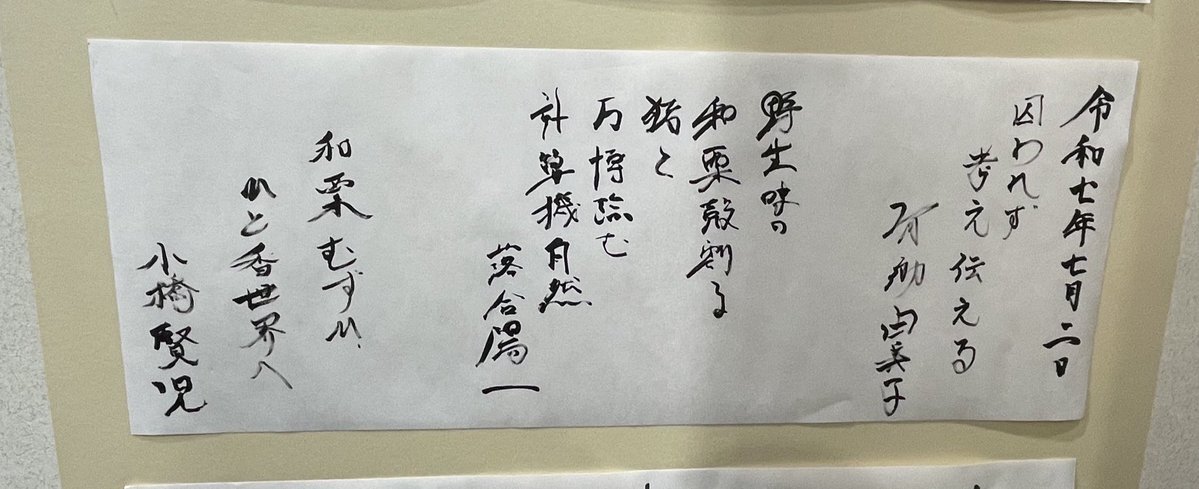 令和七年七月二日
囚われず
考え伝える
有働由美子
野生味の
和栗殻割る
猪と
万博臨む
計算機自然
落合陽一
和栗むすび
ひと香世界へ
小橋賢児